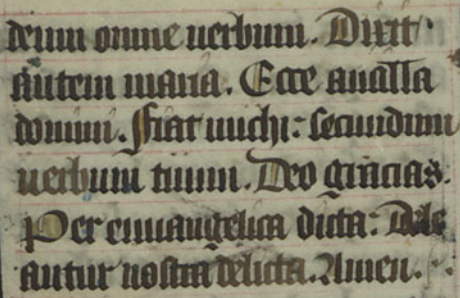 deum omne uerbum. Dixit
autem maria. Ecce ancilla
domini. Fiat michi: secundum
uerbum tuum. Deo gracias.
Per euuangelica dicta: Dele
antur nostra delicta. Amen.